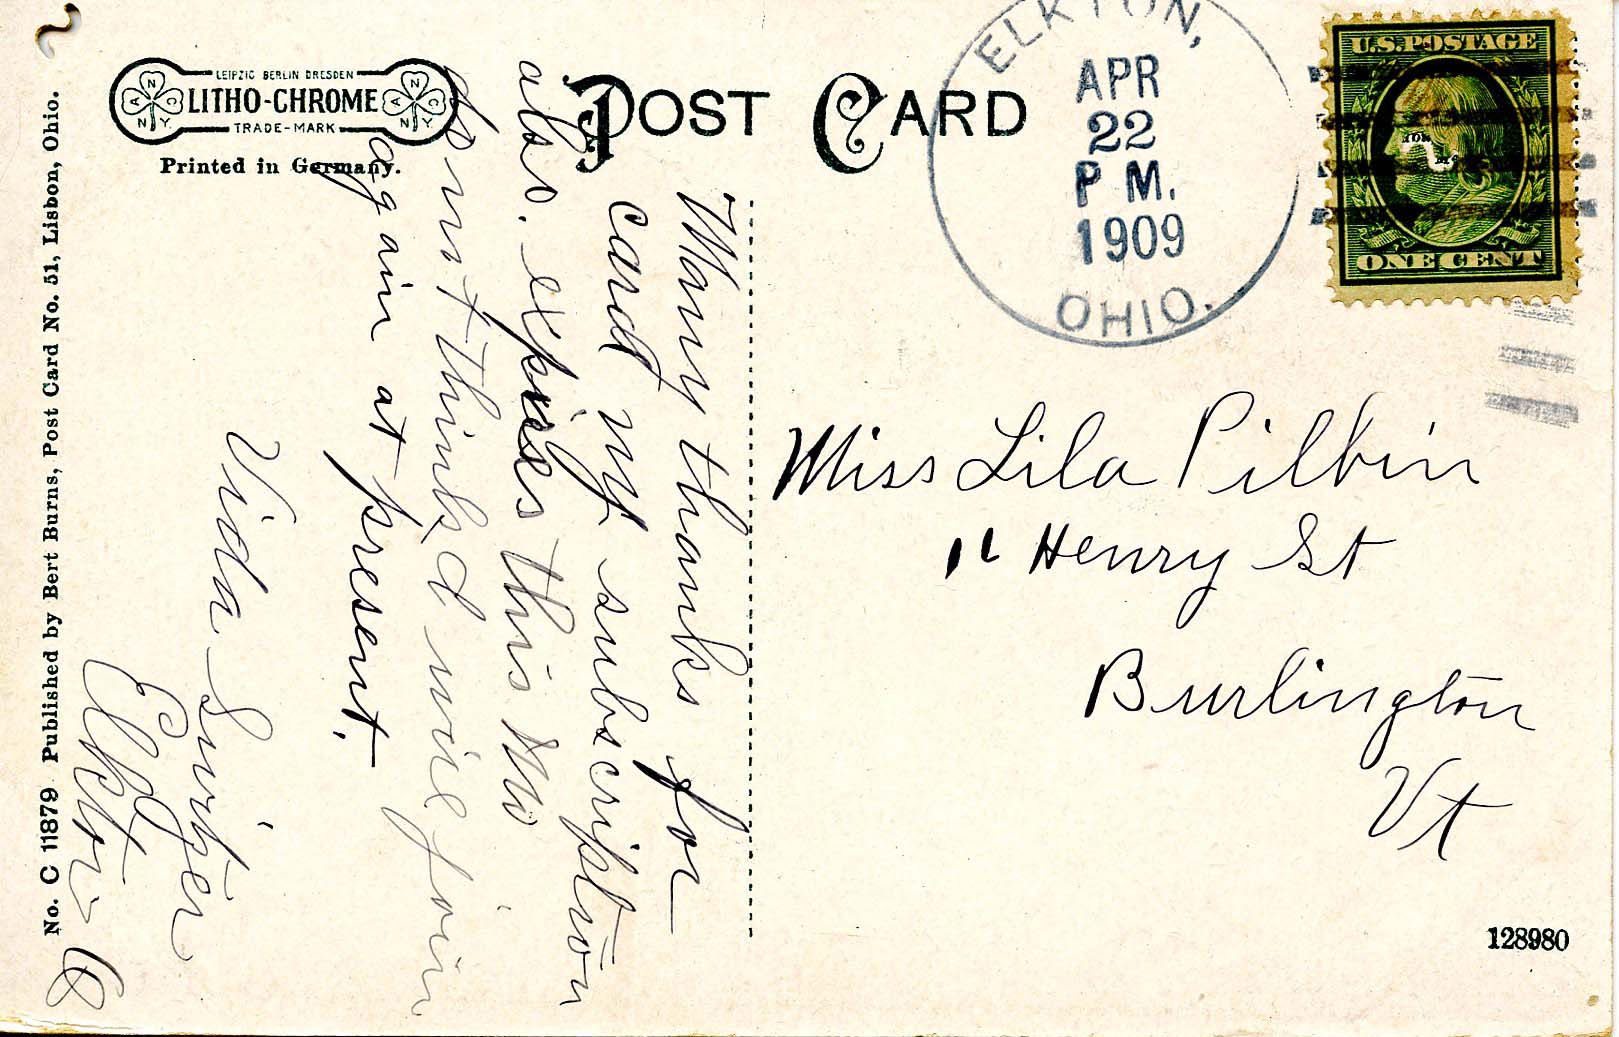 LEIPZIG BERLIN DRESDEN
LITHO-CHROME
TRADE-MARK
Printed in Germany.
POST CARD
ELKTON,
APR
22
P M.
1909
OHIO.
U.S. POSTAGE
ONE CENT
No. C 11879 Published by Bert Burns, Post Card No. 51, Lisbon, Ohio.
Many thanks for
card my subscription
also. expires this Mo
but think I will join
again at present.
Vida Switzer
Elkton O
Miss Lila Pilbin
11 Henry St
Burlington
Vt
128980